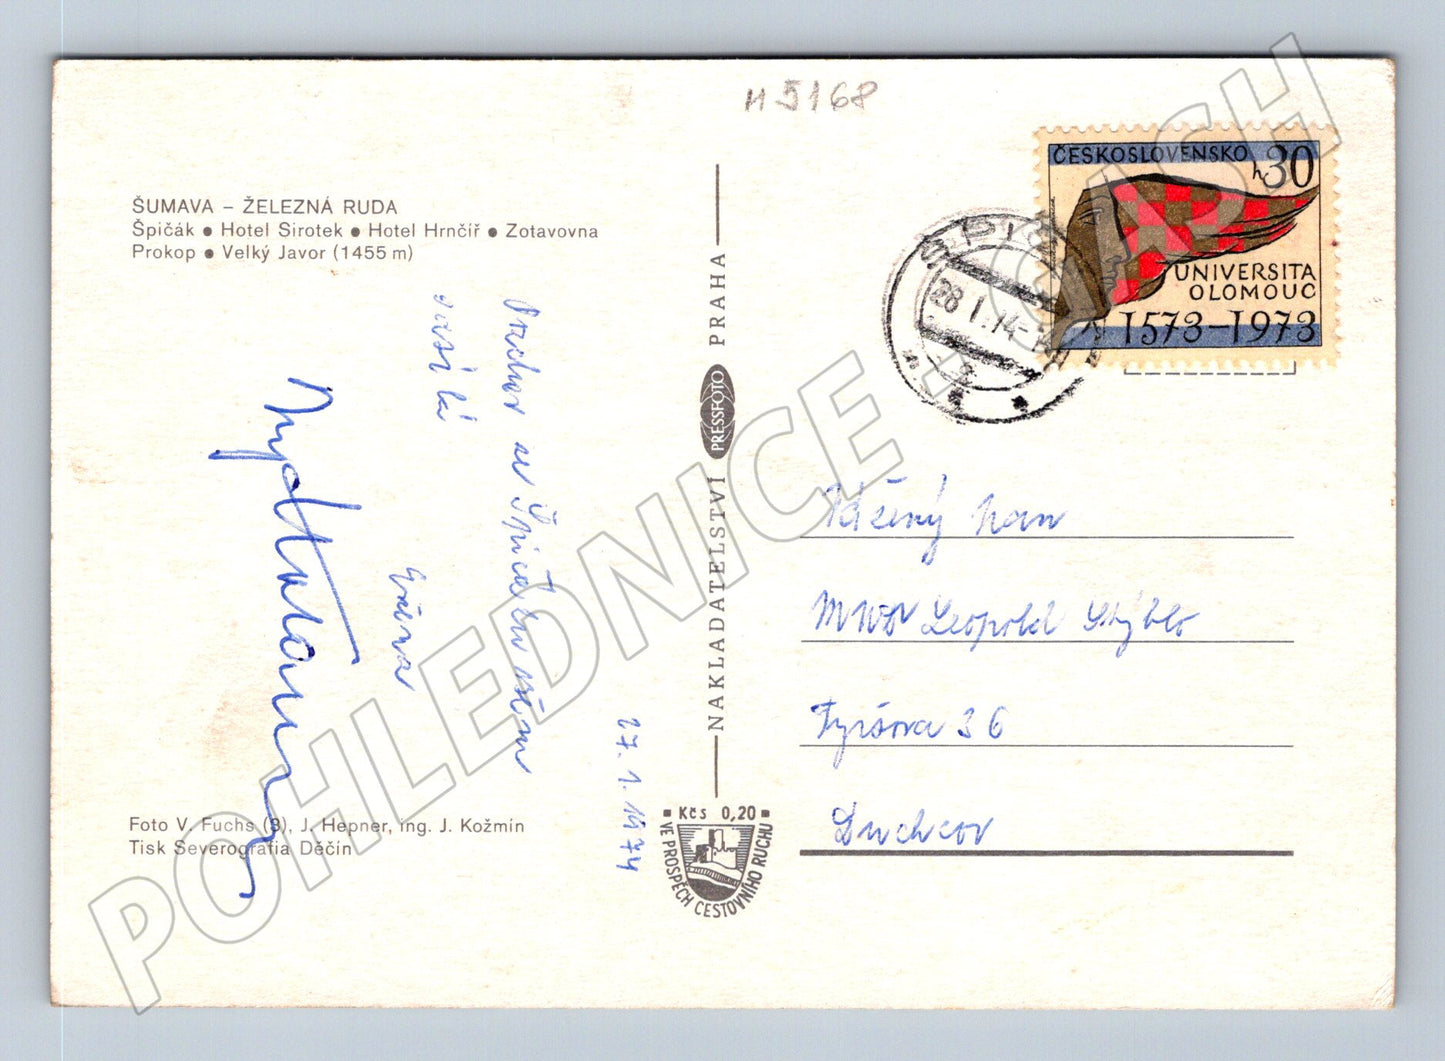 H 5168
ŠUMAVA – ŽELEZNÁ RUDA
Špičák ● Hotel Sirotek ● Hotel Hrnčíř ● Zotavovna
Prokop ● Velký Javor (1455 m)
Pozdrav ze Špičáku všem
posílá
27. 1. 1974
Foto V. Fuchs (3), J. Hepner, ing. J. Kožmín
Tisk Severografia Děčín
NAKLADATELSTVÍ PRESSFOTO PRAHA
Kčs 0,20
VE PROSPĚCH CESTOVNÍHO RUCHU
ČESKOSLOVENSKO
h 30
UNIVERSITA
OLOMOUC
1573–1973
28.1.74
Vážený pan
MUDr Leopold Stýblo
Tyršova 36
Duchcov
POHLEDNICE - CASH